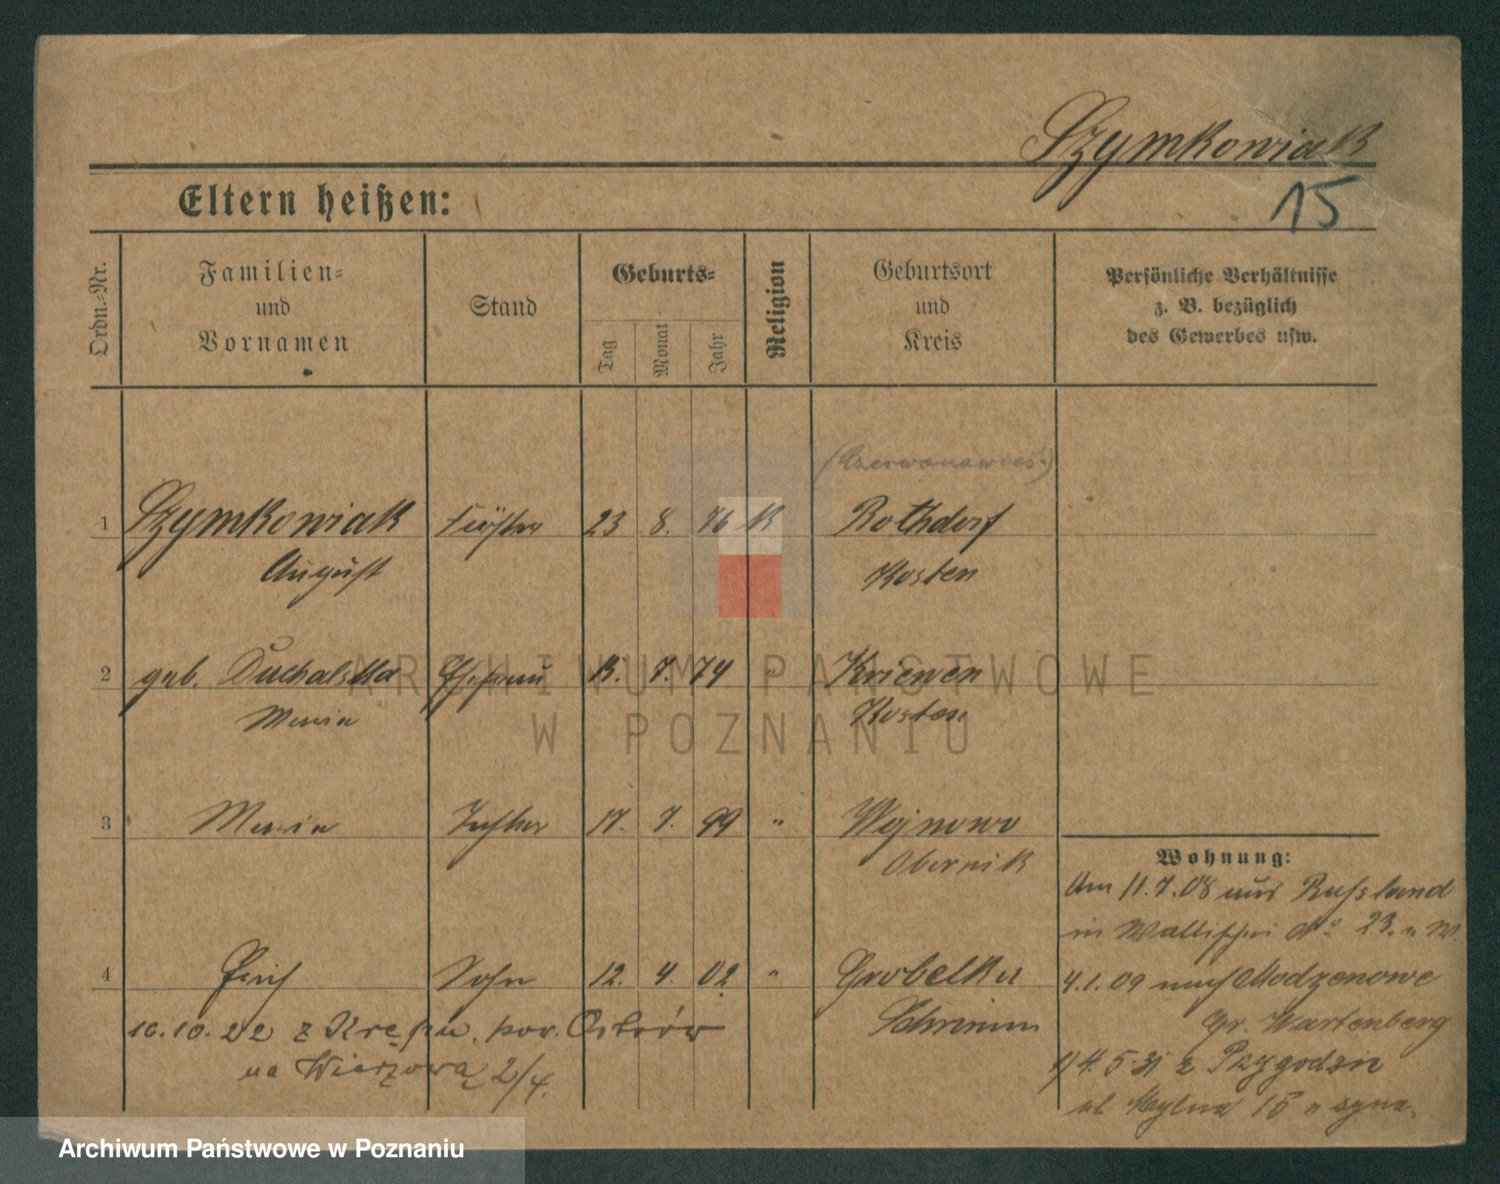 Szymkowiak
15
Eltern heißen:
Ordn.-Nr.
Familien-
und
Vornamen
Stand
Geburts-
Tag
Monat
Jahr
Religion
Geburtsort
und
Kreis
Persönliche Verhältnisse
z. B. bezüglich
des Gewerbes usw.
(Czerwonawieś)
1 Szymkowiak Förster 23 8. 76 K Rothdorf
August Kosten
2 geb. Duchalska Ehefrau 13. 7. 74 " Kriewen
Maria Kosten
ARCHIWUM PAŃSTWOWE
W POZNANIU
3 Maria Tochter 17. 7. 99 " Wojnowo
Obernik
Wohnung:
Am 11.7.08 aus Russland
in Wallischei No 23. n W.
4 Erich Sohn 12. 4. 02 " Grobelka
Schrimm
4.1.09 nach Modzenowe
Gr. Wartenberg
10.10.22 z Krępu, pow. Ostrów
na Wierzową 2/4.
4.5 31 z Przygodzic
ul Mylna 15 u syna.
Archiwum Państwowe w Poznaniu